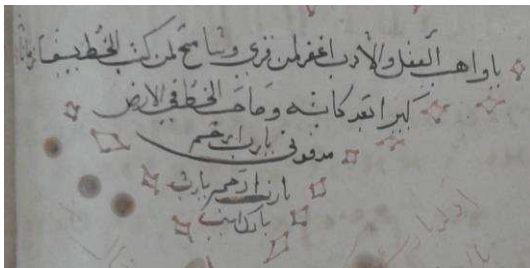 يا واهب العقل والأدب اغفر لمن قرى وسامح لمن كتب الخط يبقا زمانا
بعد كاتبه وصاحب الخط في الارض
مدفونى يارب ارحم
يارب ارحم يارب
يارب